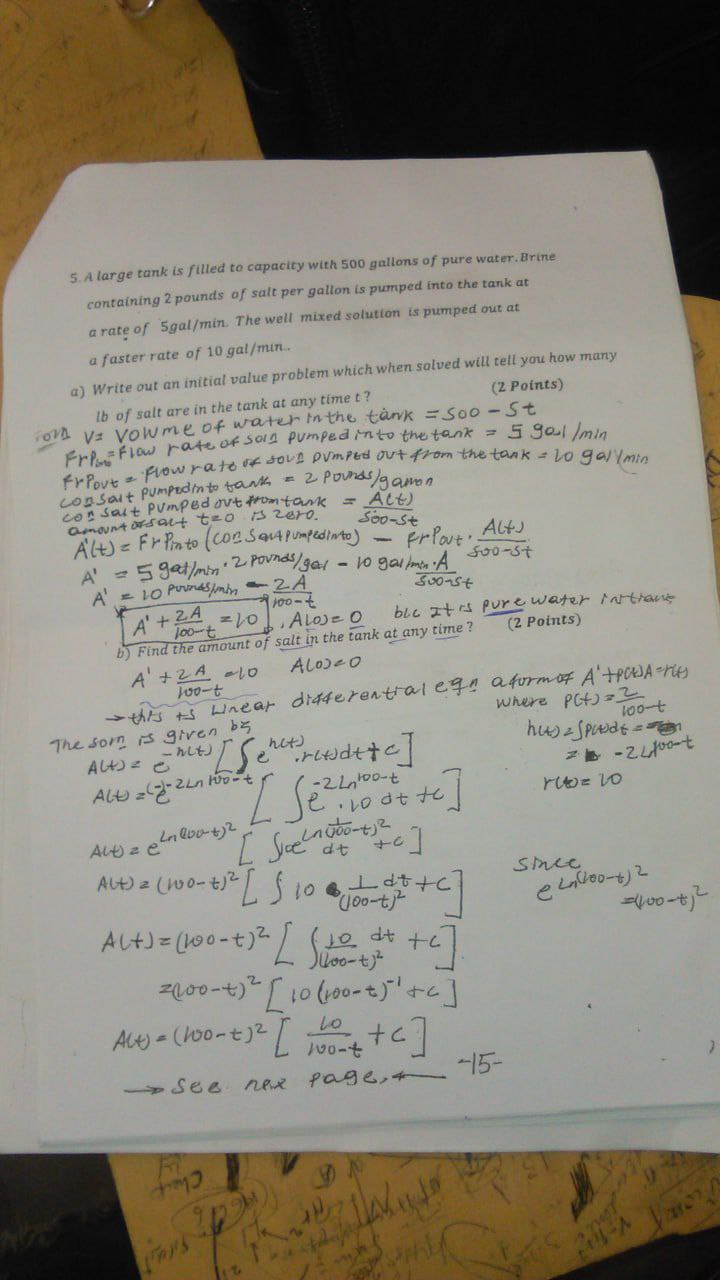 5. A large tank is filled to capacity with 500 gallons of pure water. Brine
containing 2 pounds of salt per gallon is pumped into the tank at
a rate of 5gal/min. The well mixed solution is pumped out at
a faster rate of 10 gal/min..
a) Write out an initial value problem which when solved will tell you how many
lb of salt are in the tank at any time t ? (2 Points)
V = Volume of water in the tank = 500 - 5t
FrPinto = Flow rate of soln pumped into the tank = 5 gal/min
FrPout = Flow rate of soln pumped out from the tank = 10 gal/min
con salt pumped into tank = 2 pounds/gallon
con salt pumped out from tank = A(t)/500-5t
amount of salt t=0 is zero.
A'(t) = FrPinto (con salt pumped into) - FrPout . A(t)/500-5t
A' = 5 gal/min . 2 pounds/gal - 10 gal/min . A/500-5t
A' = 10 pounds/min - 2A/100-t
A' + 2A/100-t = 10 , A(0) = 0 b/c It is pure water
b) Find the amount of salt in the tank at any time ? (2 Points)
A' + 2A/100-t = 10 A(0)=0
→ this is Linear differential eqn a form of A'+p(t)A=r(t)
where p(t) = 2/100-t
The soln is given by
h(t) = ∫p(t)dt =
A(t) = e^-h(t) [ ∫e^h(t) .r(t)dt + c ]
= -2Ln^100-t
r(t) = 10
A(t) = e^(-)-2Ln 100-t [ ∫e^-2Ln^100-t .10 dt + c ]
A(t) = e^Ln(100-t)^2 [ ∫10e^Ln(1/100-t)^2 dt + c ]
A(t) = (100-t)^2 [ ∫ 10 1/(100-t)^2 dt + c ]
since
e^Ln(100-t)^2
=(100-t)^2
A(t) = (100-t)^2 [ ∫ 10/(100-t)^2 dt + c ]
=(100-t)^2 [ 10(100-t)^-1 + c ]
A(t) = (100-t)^2 [ 10/100-t + c ]
→ See nex page, ←
-15-